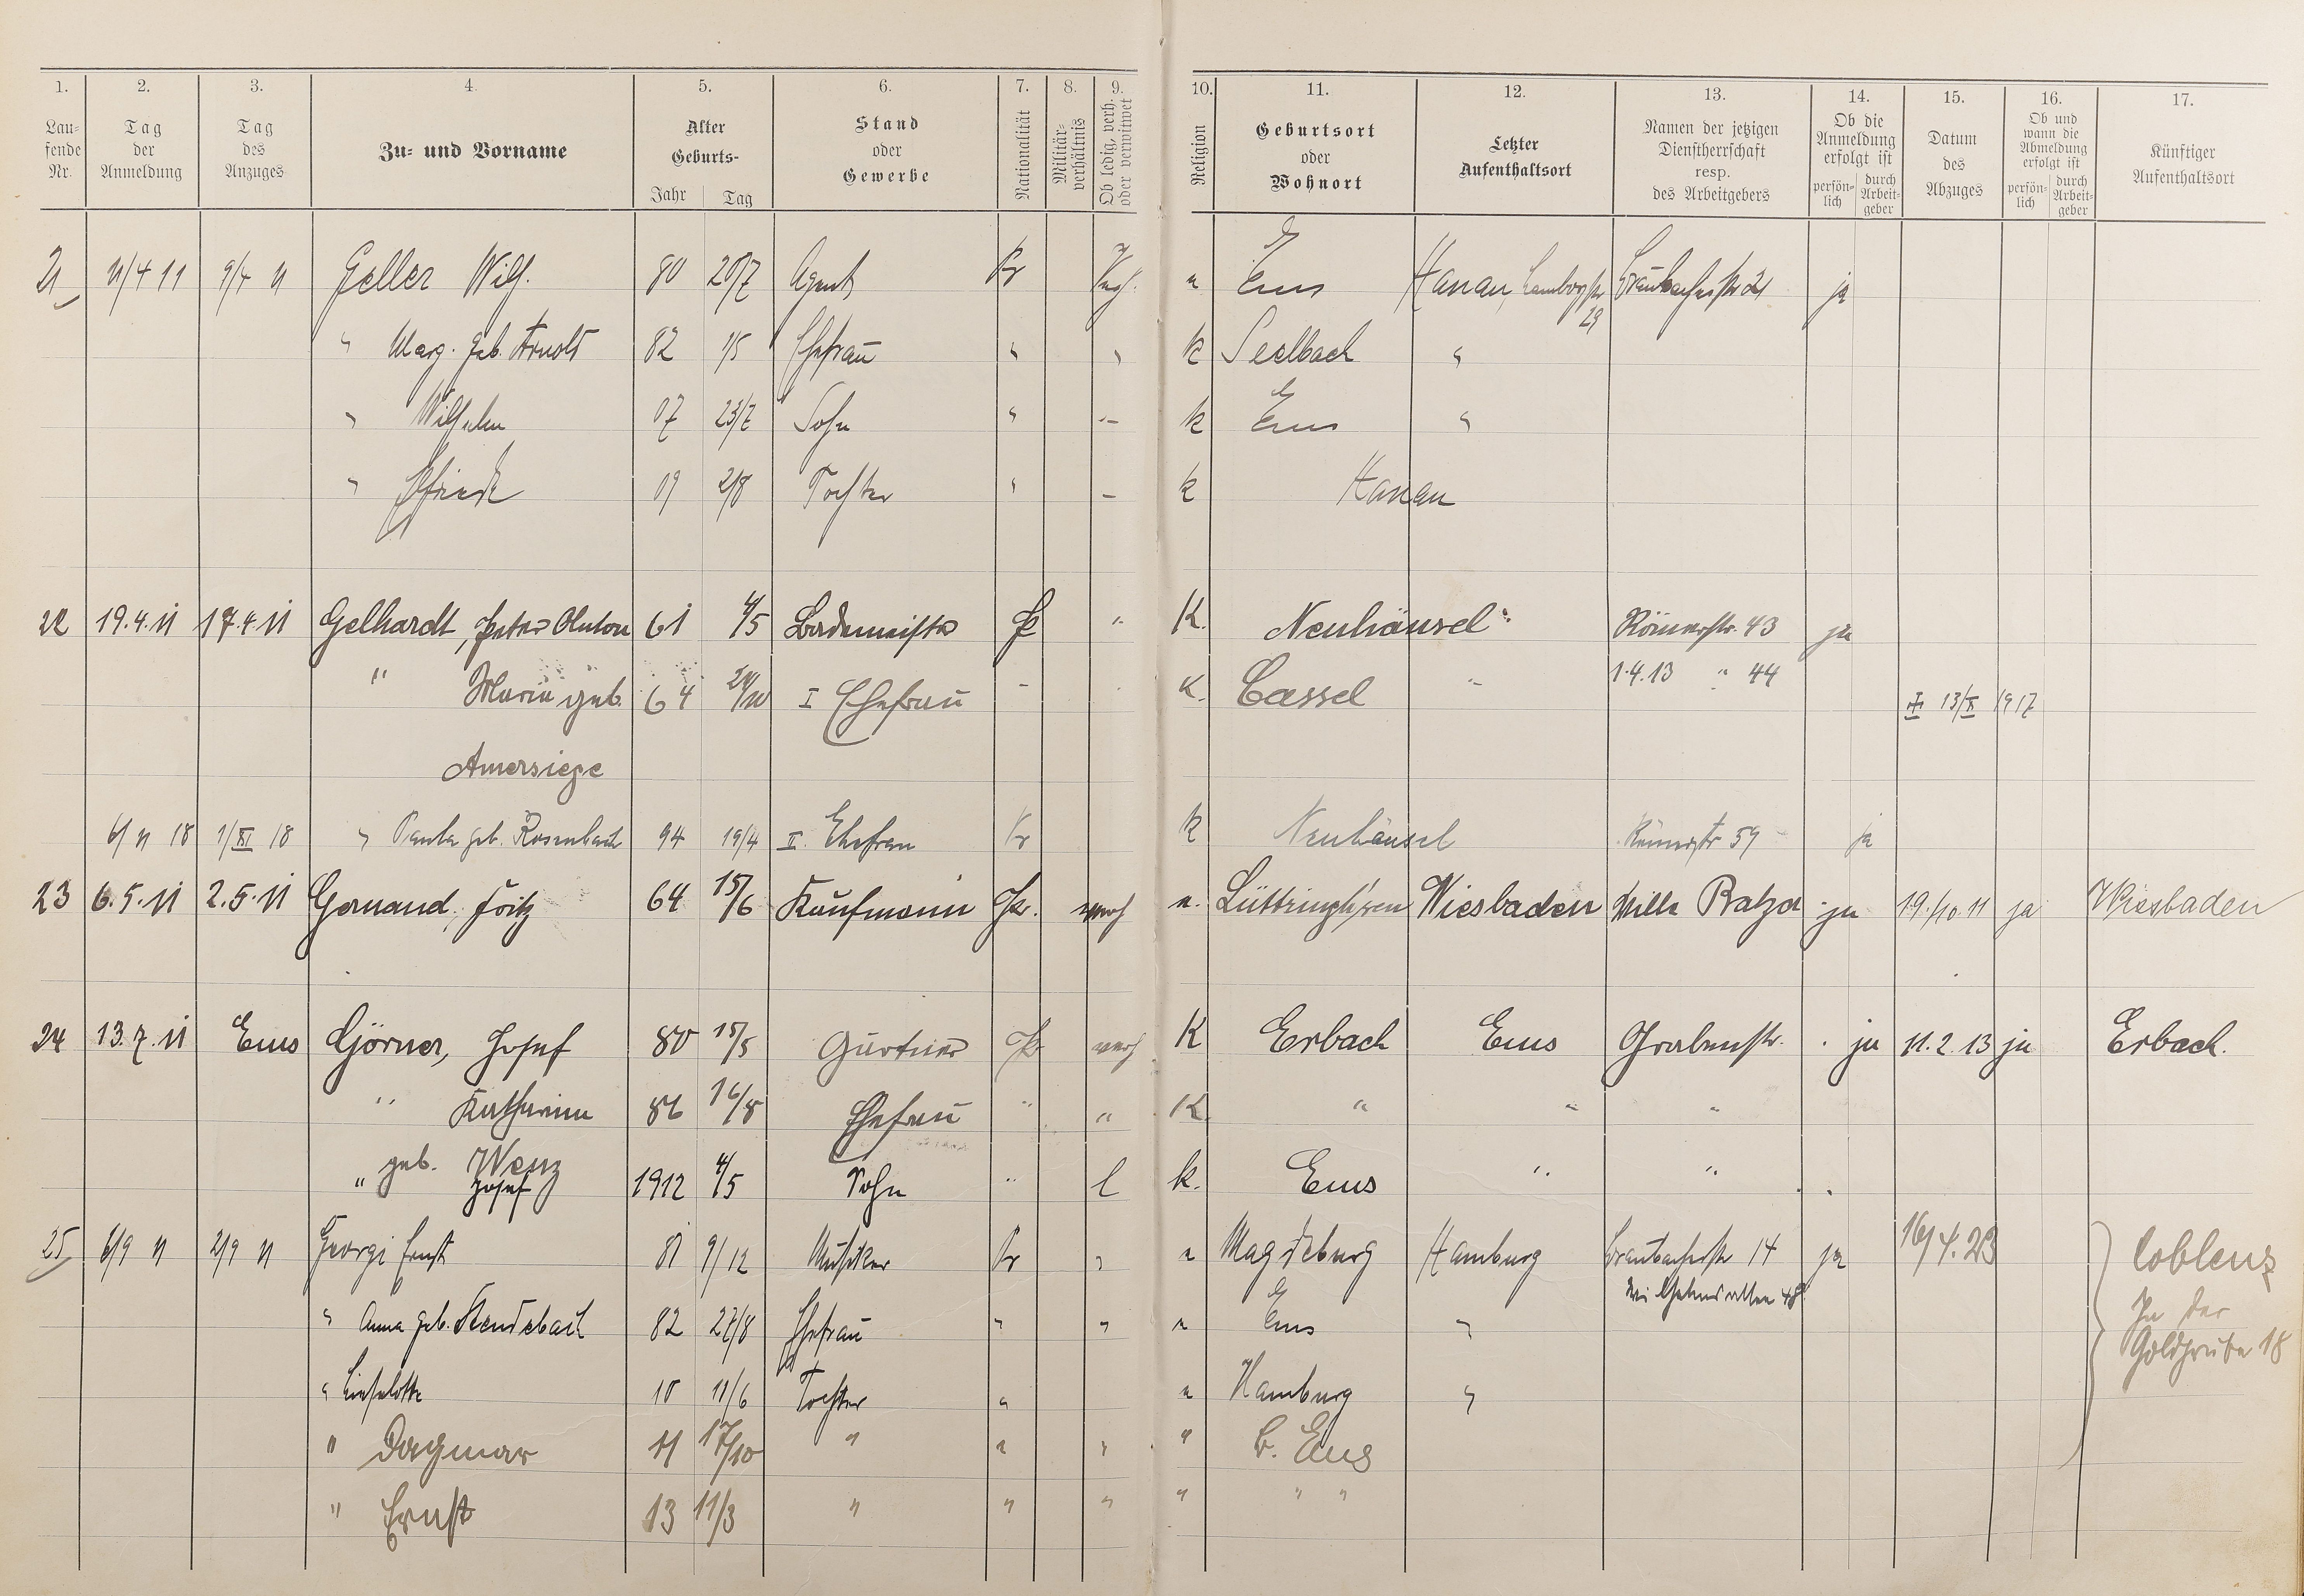 1. 2. 3. 4. 5. 6. 7. 8. 9. 10. 11. 12. 13. 14. 15. 16. 17.
Lau-
fende
Nr.
Tag
der
Anmeldung
Tag
des
Anzuges
Zu- und Vorname
Alter
Geburts-
Jahr Tag
Stand
oder
Gewerbe
Nationalität
Militär-
verhältnis
Ob ledig, verh.
oder verwitwet
Religion
Geburtsort
oder
Wohnort
Letzter
Aufenthaltsort
Namen der jetzigen
Dienstherrschaft
resp.
des Arbeitgebers
Ob die
Anmeldung
erfolgt ist
persön-
lich
durch
Arbeit-
geber
Datum
des
Abzuges
Ob und
wann die
Abmeldung
erfolgt ist
persön-
lich
durch
Arbeit-
geber
Künftiger
Aufenthaltsort
21 11/4 11 9/4 11 Geller Wilh. 80 20/7 Agent Pr Verh. Ems Hanau, ja
29
" Marg. geb. Arnold 82 1/5 Ehefrau " " k Seelbach "
" Wilhelm 07 23/7 Sohn " — k Ems "
" Elfriede 09 2/8 Tochter " — k Hanau
22 19.4.11 17.4.11 Gelhardt, Peter Anton 61 4/5 Bademeister " K. Neuhäusel Römerstr. 43 ja
" Maria geb. 64 I Ehefrau K. Cassel " 1.4.13 " 44 13/X 1917
Amersiege
6/11 18 1/XI 18 " Paula geb. Rosenbach 94 19/4 II. Ehefrau Pr k Neuhäusel Römerstr 59 ja
23 6.5.11 2.5.11 Gernand, Fritz 64 15/6 Kaufmann Pr. verh Wiesbaden Villa Balzer ja 19./10.11 ja Wiesbaden
24 13.7.11 Ems Görner, Josef 80 15/5 Gärtner Pr verh K Erbach Ems Grabenstr. ja 11.2.13 ja Erbach.
" Katharina 86 16/8 Ehefrau " " K. " " "
geb. Wenz
" Josef 1912 4/5 Sohn " l k. Ems " "
25 6/9 11 2/9 11 Georgi Ernst 81 9/12 Musiker Pr " Magdeburg Hamburg Braubacherstr 14 ja 16/4.23 Coblenz
48
" Anna geb. 82 27/8 Ehefrau " " Ems " In der
Goldgrube 18
" Lieselotte 10 11/6 Tochter " Hamburg "
" Dagmar 11 17/10 " " " " B. Ems
" Ernst 13 11/3 " " " " " "